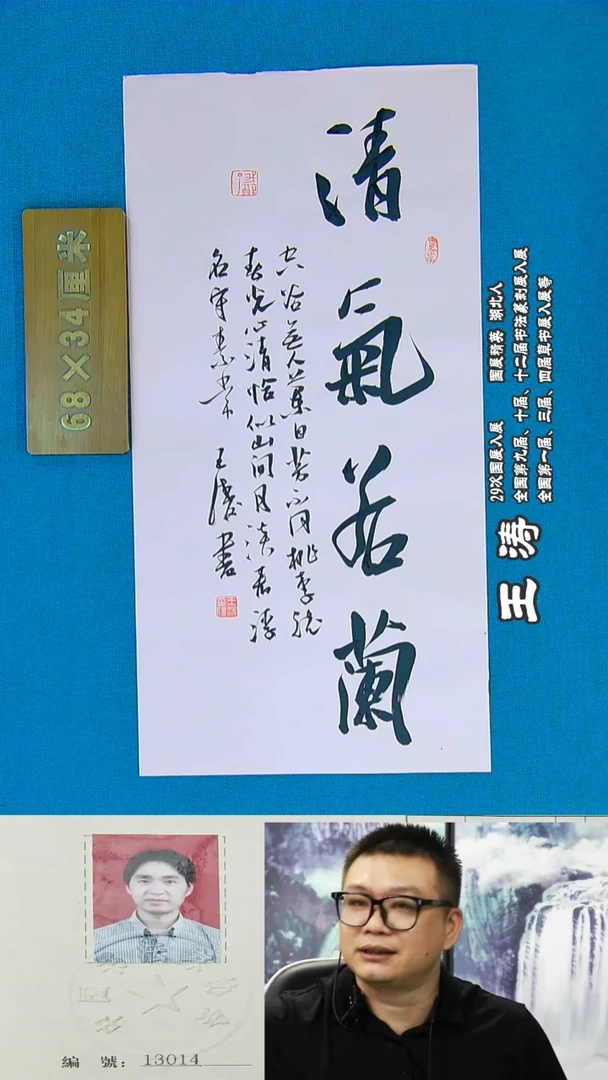 清氣若蘭
空谷無人葉自芳不同桃李競
春光心清恰似山間月淡看浮
名守素常 王濤書
68×34厘米
29次国展入展 国展精英 湖北人
全国第九届、十届、十二届书法篆刻展入展
全国第一届、三届、四届草书展入展等
王涛
編號：13014